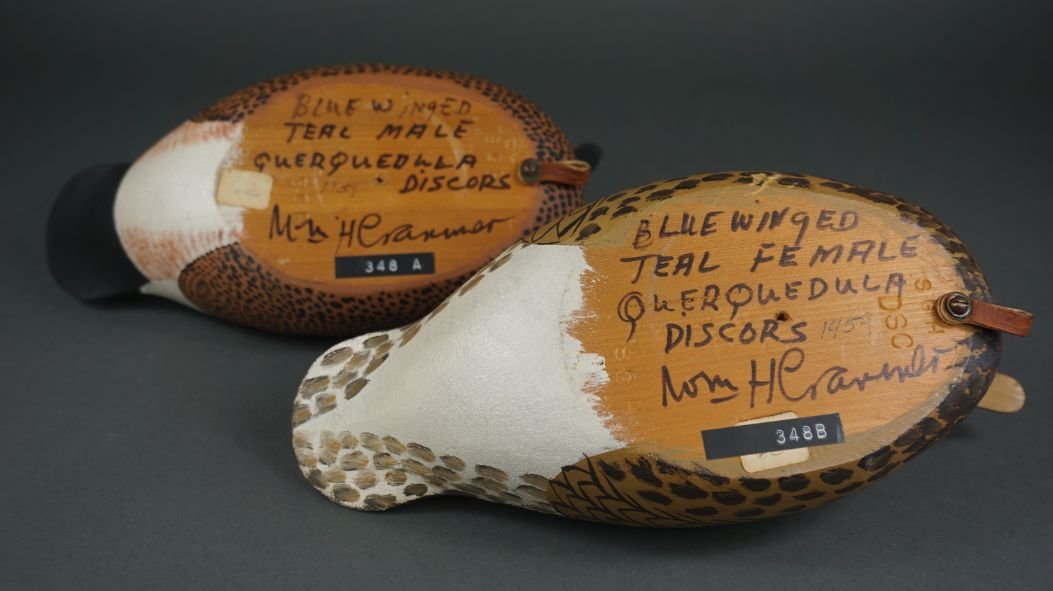 BLUE WINGED
TEAL MALE
QUERQUEDULA
1959 DISCORS
Wm H Cranmer
348 A
BLUE WINGED
TEAL FEMALE
QUERQUEDULA
DISCORS 1959
Wm H Cranmer
DSC
348B